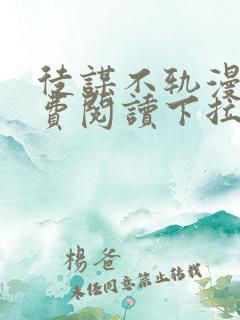 徒謀不軌漫
費閱讀下拉
楊爸
未經同意禁止轉載